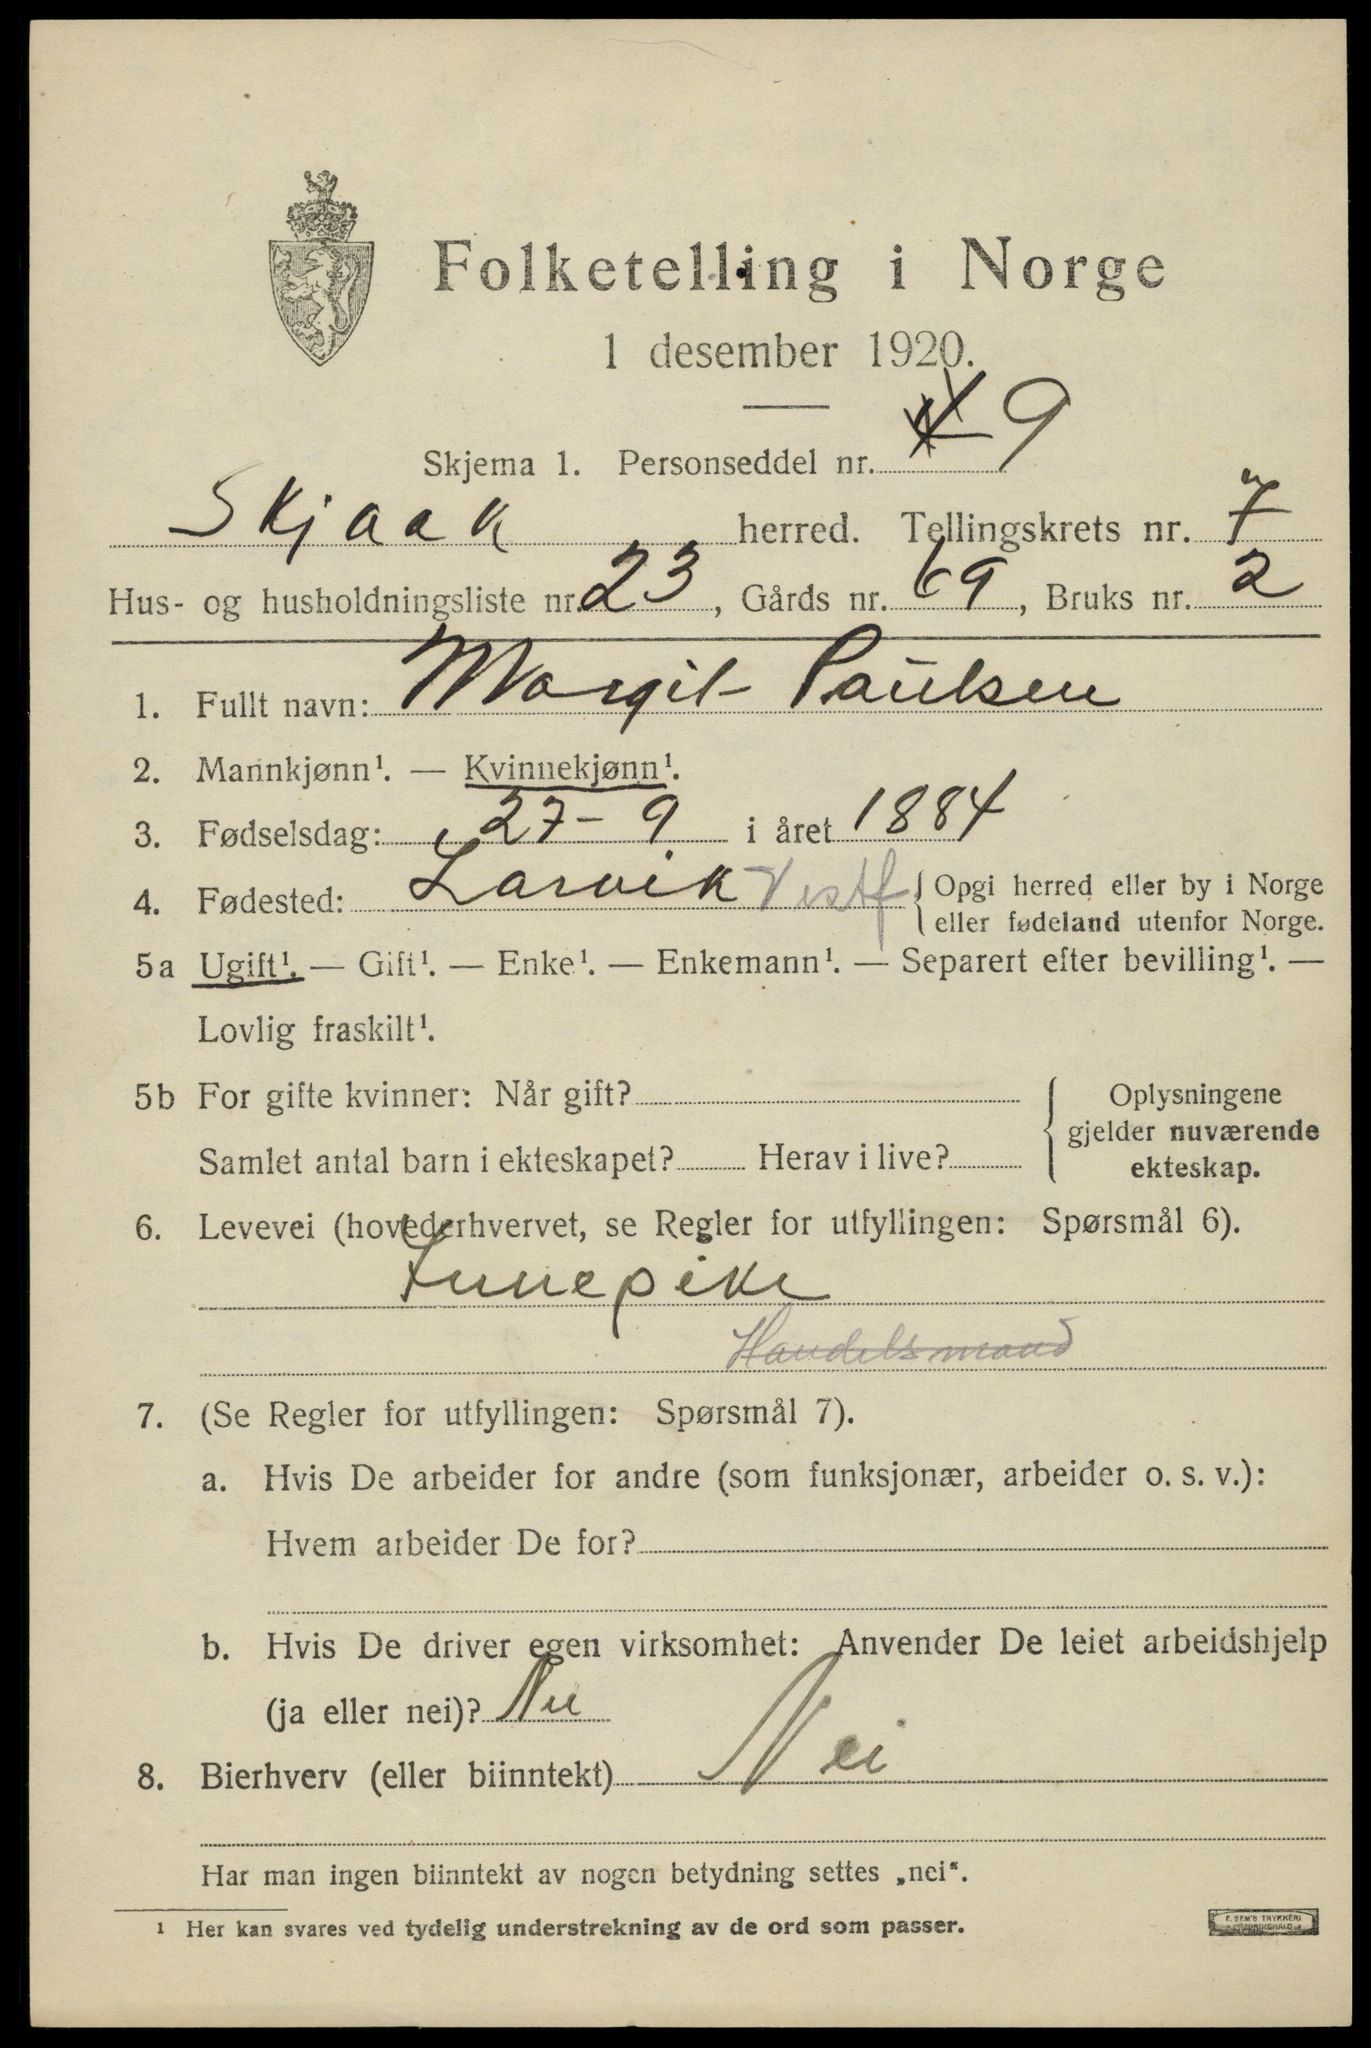 Folketelling i Norge
1 desember 1920.
Skjema 1. Personseddel nr. 9
Skjaak herred. Tellingskrets nr. 7
Hus- og husholdningsliste nr. 23, Gårds nr. 69, Bruks nr. 2
1. Fullt navn: Margit Paulsen
2. Mannkjønn¹. — Kvinnekjønn¹.
3. Fødselsdag: 27-9 i året 1884
4. Fødested: Larvik Vestf { Opgi herred eller by i Norge
eller fødeland utenfor Norge.
5a Ugift¹. — Gift¹. — Enke¹. — Enkemann¹. — Separert efter bevilling¹. —
Lovlig fraskilt¹.
5b For gifte kvinner: Når gift?
Samlet antal barn i ekteskapet? Herav i live?
Oplysningene
gjelder nuværende
ekteskap.
6. Levevei (hovederhvervet, se Regler for utfyllingen: Spørsmål 6).
Handelsmand
7. (Se Regler for utfyllingen: Spørsmål 7).
a. Hvis De arbeider for andre (som funksjonær, arbeider o. s. v.):
Hvem arbeider De for?
b. Hvis De driver egen virksomhet: Anvender De leiet arbeidshjelp
(ja eller nei)? Nei
8. Bierhverv (eller biinntekt) Nei
Har man ingen biinntekt av nogen betydning settes „nei“.
¹ Her kan svares ved tydelig understrekning av de ord som passer.